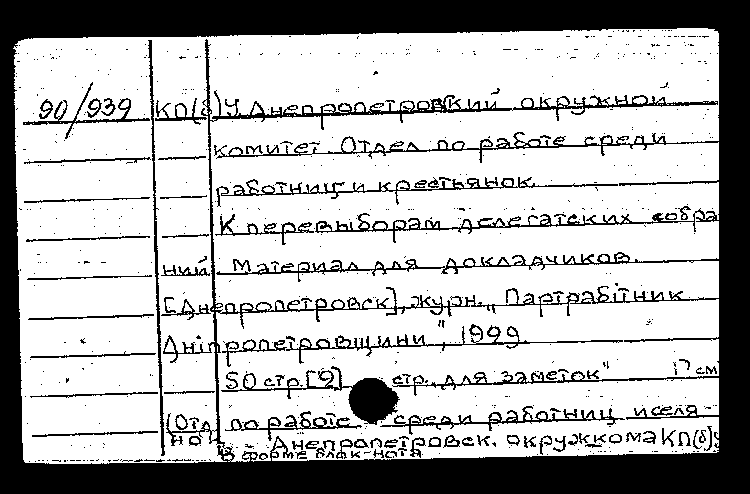 90/939 КП(б)У Днепропетровский окружной
комитет. Отдел по работе среди
работниц и крестьянок.
К перевыборам делегатских собра
ний. Материал для докладчиков.
[Днепропетровск], журн. „Партрабітник
Дніпропетровщини", 1929.
50 стр. [2] стр. „для заметок" 17 см
(Отд по работе среди работниц и селя-
но Днепропетровск. окружкома КП(б)У
В форме блок-нота